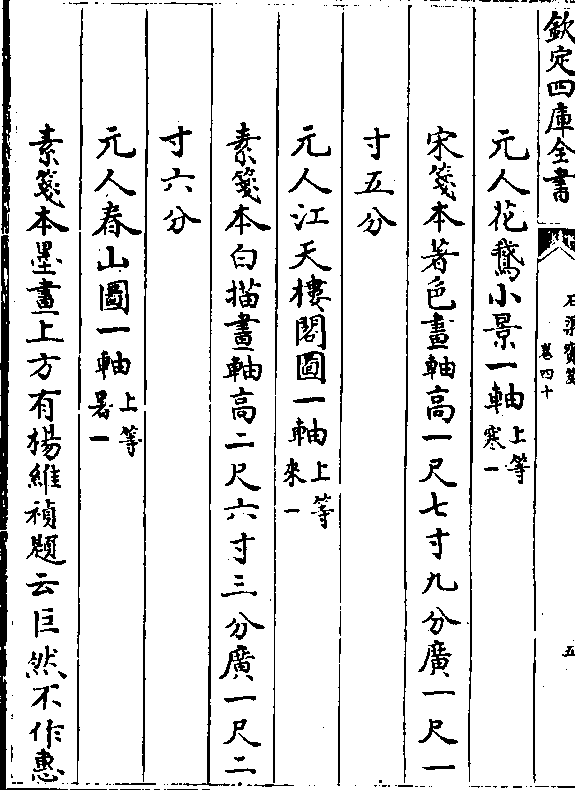 欽定四庫全書
石渠寶笈
卷四十
五
元人花鵞小景一軸上等寒一
宋箋本著色畫軸高一尺七寸九分廣一尺一
寸五分
元人江天樓閣圖一軸上等來一
素箋本白描畫軸高二尺六寸三分廣一尺二
寸六分
元人春山圖一軸上等暑一
素箋本墨畫上方有楊維禎題云巨然不作惠